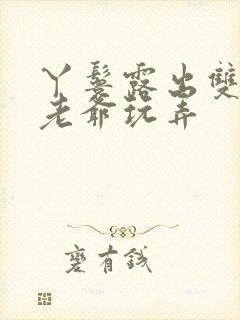 丫鬟露出雙
老爺玩弄
褻有錢